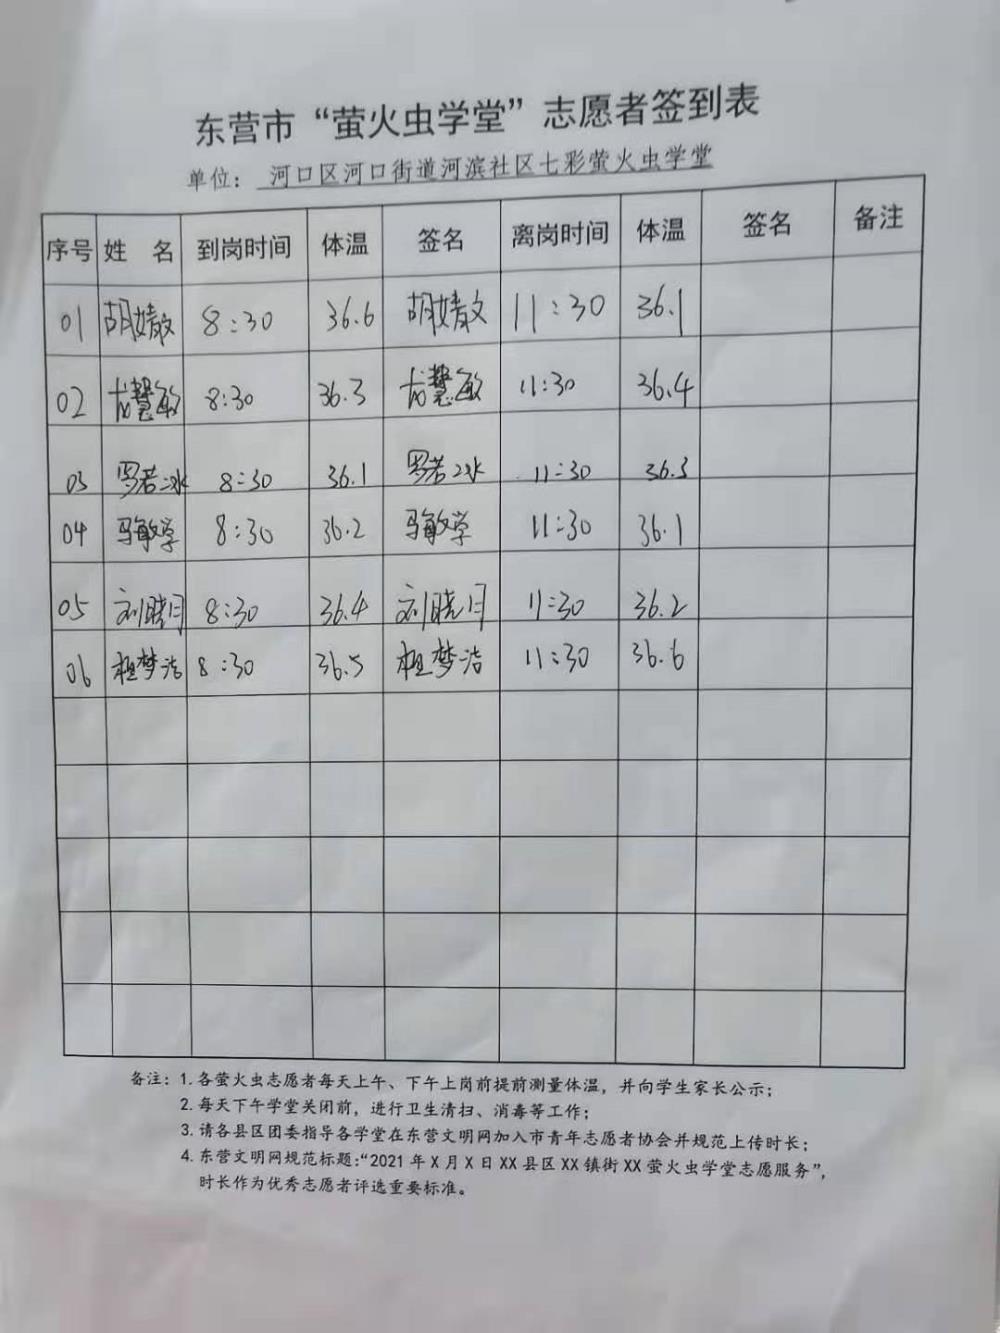 东营市“萤火虫学堂”志愿者签到表
单位：河口区河口街道河滨社区七彩萤火虫学堂
序号 姓 名 到岗时间 体温 签名 离岗时间 体温 签名 备注
01 胡婧敏 8:30 36.6 胡婧敏 11:30 36.1
02 尤慧敏 8:30 36.3 尤慧敏 11:30 36.4
03 罗若冰 8:30 36.1 罗若冰 11:30 36.3
04 马敏学 8:30 36.2 马敏学 11:30 36.1
05 刘晓月 8:30 36.4 刘晓月 11:30 36.2
06 祖梦洁 8:30 36.5 祖梦洁 11:30 36.6
备注：1.各萤火虫志愿者每天上午、下午上岗前提前测量体温，并向学生家长公示；
2.每天下午学堂关闭前，进行卫生清扫、消毒等工作；
3.请各县区团委指导各学堂在东营文明网加入市青年志愿者协会并规范上传时长；
4.东营文明网规范标题：“2021年X月X日XX县区XX镇街XX萤火虫学堂志愿服务”，
时长作为优秀志愿者评选重要标准。